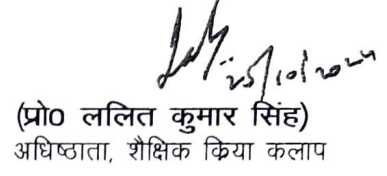 25/10/2024
(प्रो0 ललित कुमार सिंह)
अधिष्ठाता, शैक्षिक क्रिया कलाप